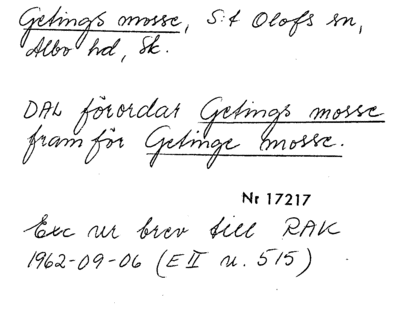 Getings mosse, S:t Olofs sn,
Albo hd, Sk.
DAL förordar Getings mosse
framför Getinge mosse.
Nr 17217
Exc ur brev till RAK
1962-09-06 (E II u. 515)